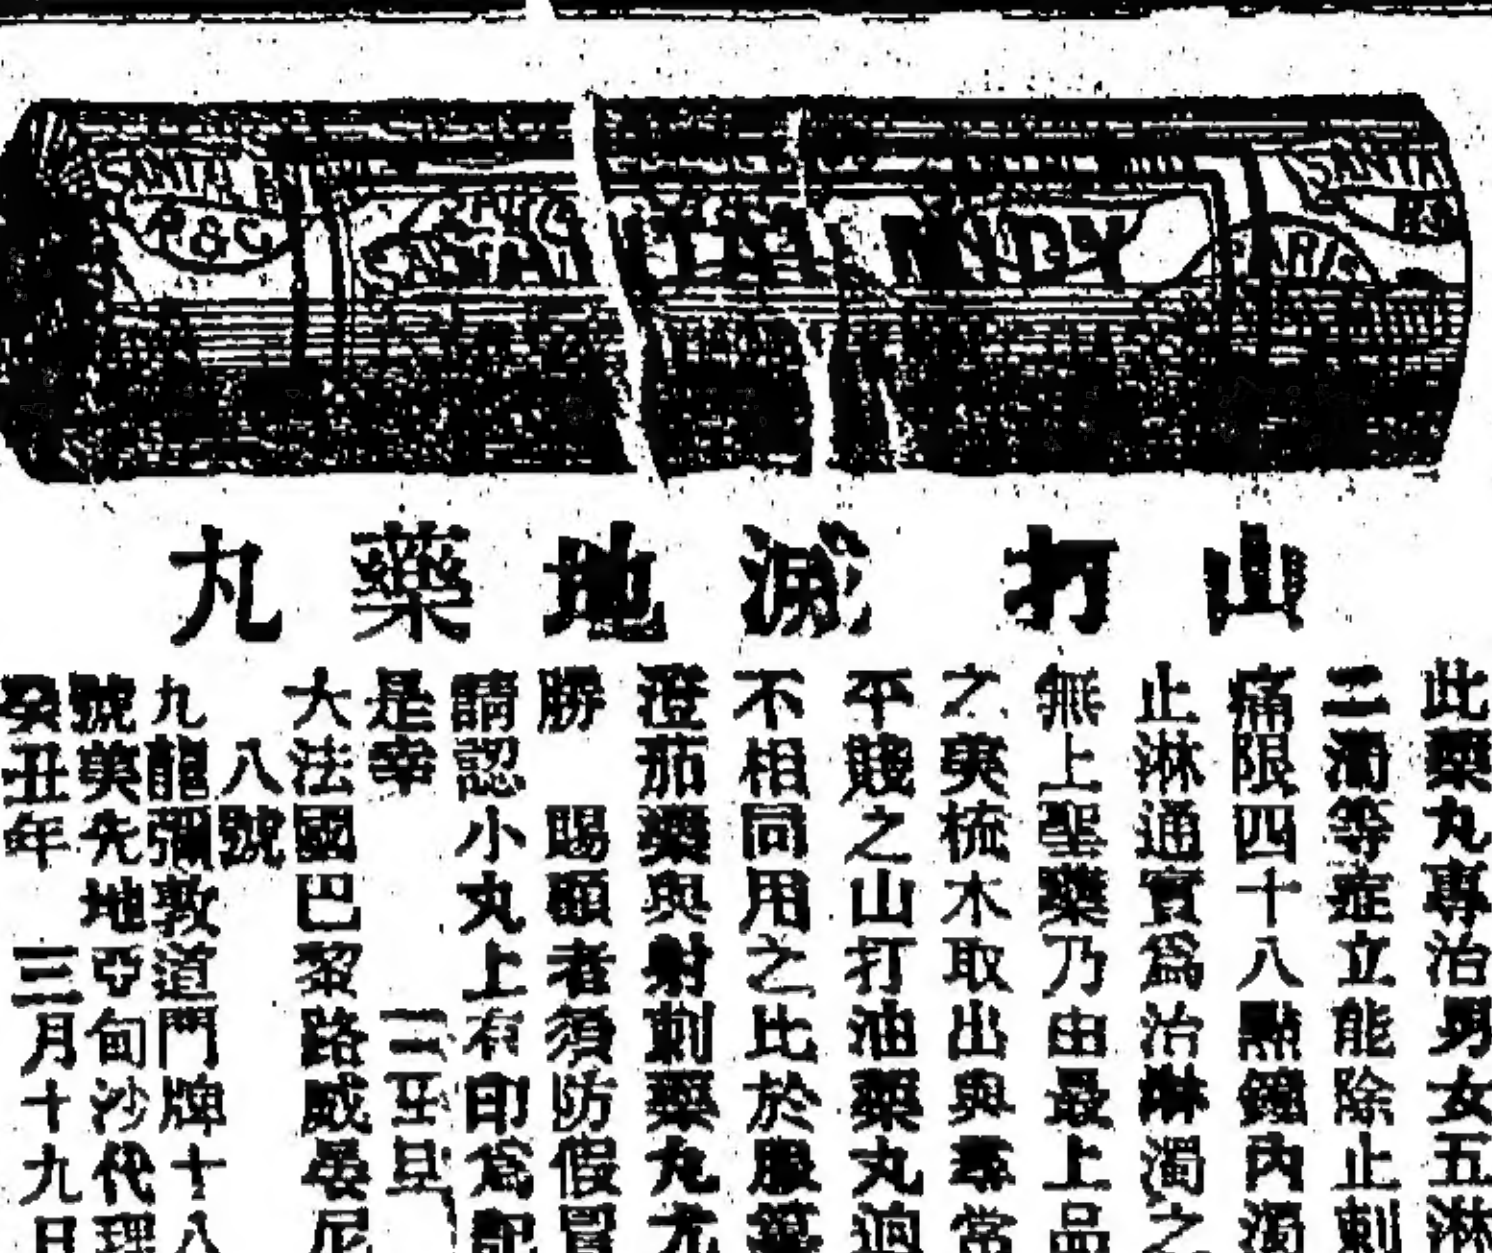 SANTAL
R&G
SANTAL MIDY
PARIS
SANTA
山打滅地藥丸
此藥丸專治男女五淋
二濁等症立能除止刺
痛限四十八點鐘內濁
止淋通實為治淋濁之
無上聖藥乃由最上品
之英梳木取出與尋常
平賤之山打油藥丸逈
不相同用之比於服
澄茄藥與射刺藥丸尤
勝 賜顧者須防假冒
請認小丸上有印為記
是幸
大法國巴黎路威晏尼
八號
九龍彌敦道門牌十八
號英先地亞甸沙代理
癸丑年 三月十九日